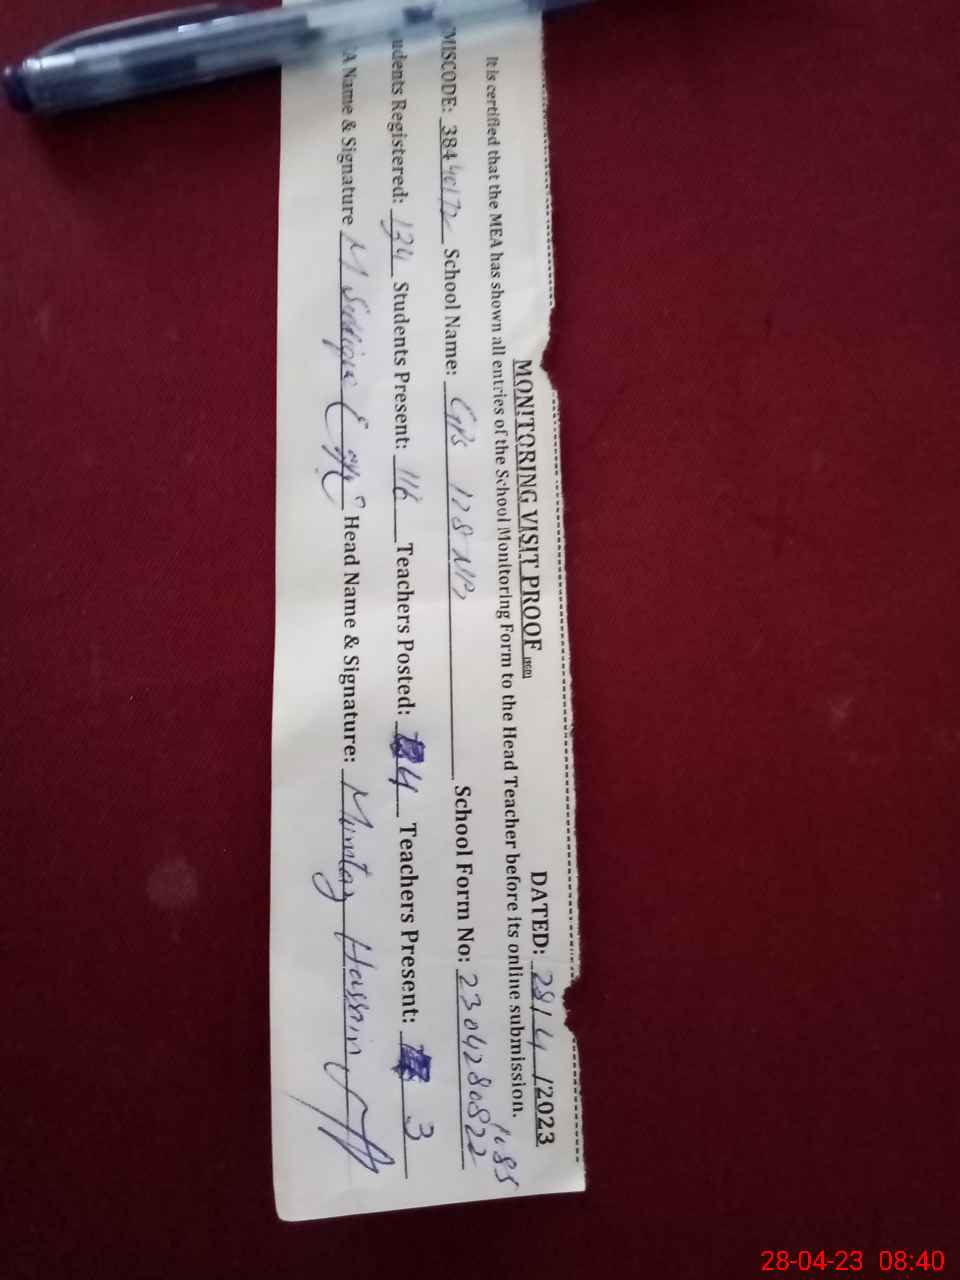 MONITORING VISIT PROOF DATED: 28/4/2023
It is certified that the MEA has shown all entries of the School Monitoring Form to the Head Teacher before its online submission.
MISCODE: 38440172 School Name: GPS 128 NB School Form No: 2304280822 1185
udents Registered: 134 Students Present: 116 Teachers Posted: 4 Teachers Present: 3
A Name & Signature M Siddique Head Name & Signature: Mumtaz Hassin
28-04-23 08:40